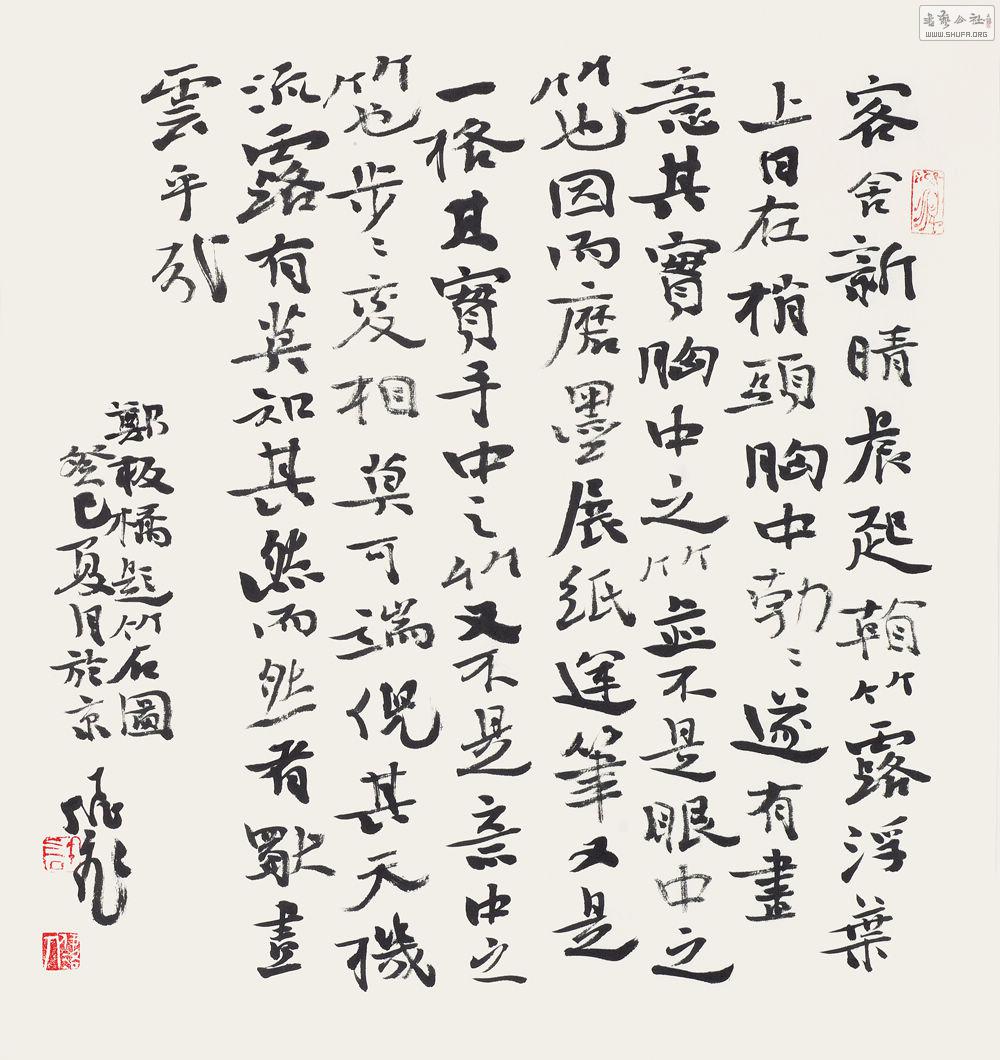 客舍新晴晨起看竹露浮葉
上日在梢頭胸中勃〻遂有畫
意其實胸中之竹並不是眼中之
竹也因而磨墨展紙運筆又是
一格其實手中之竹又不是意中之
竹也步〻變相莫可端倪其天機
流露有莫知其然而然者獨畫
雲乎哉
鄭板橋題竹石圖
癸巳夏月於京
書藝公社
WWW.SHUFA.ORG